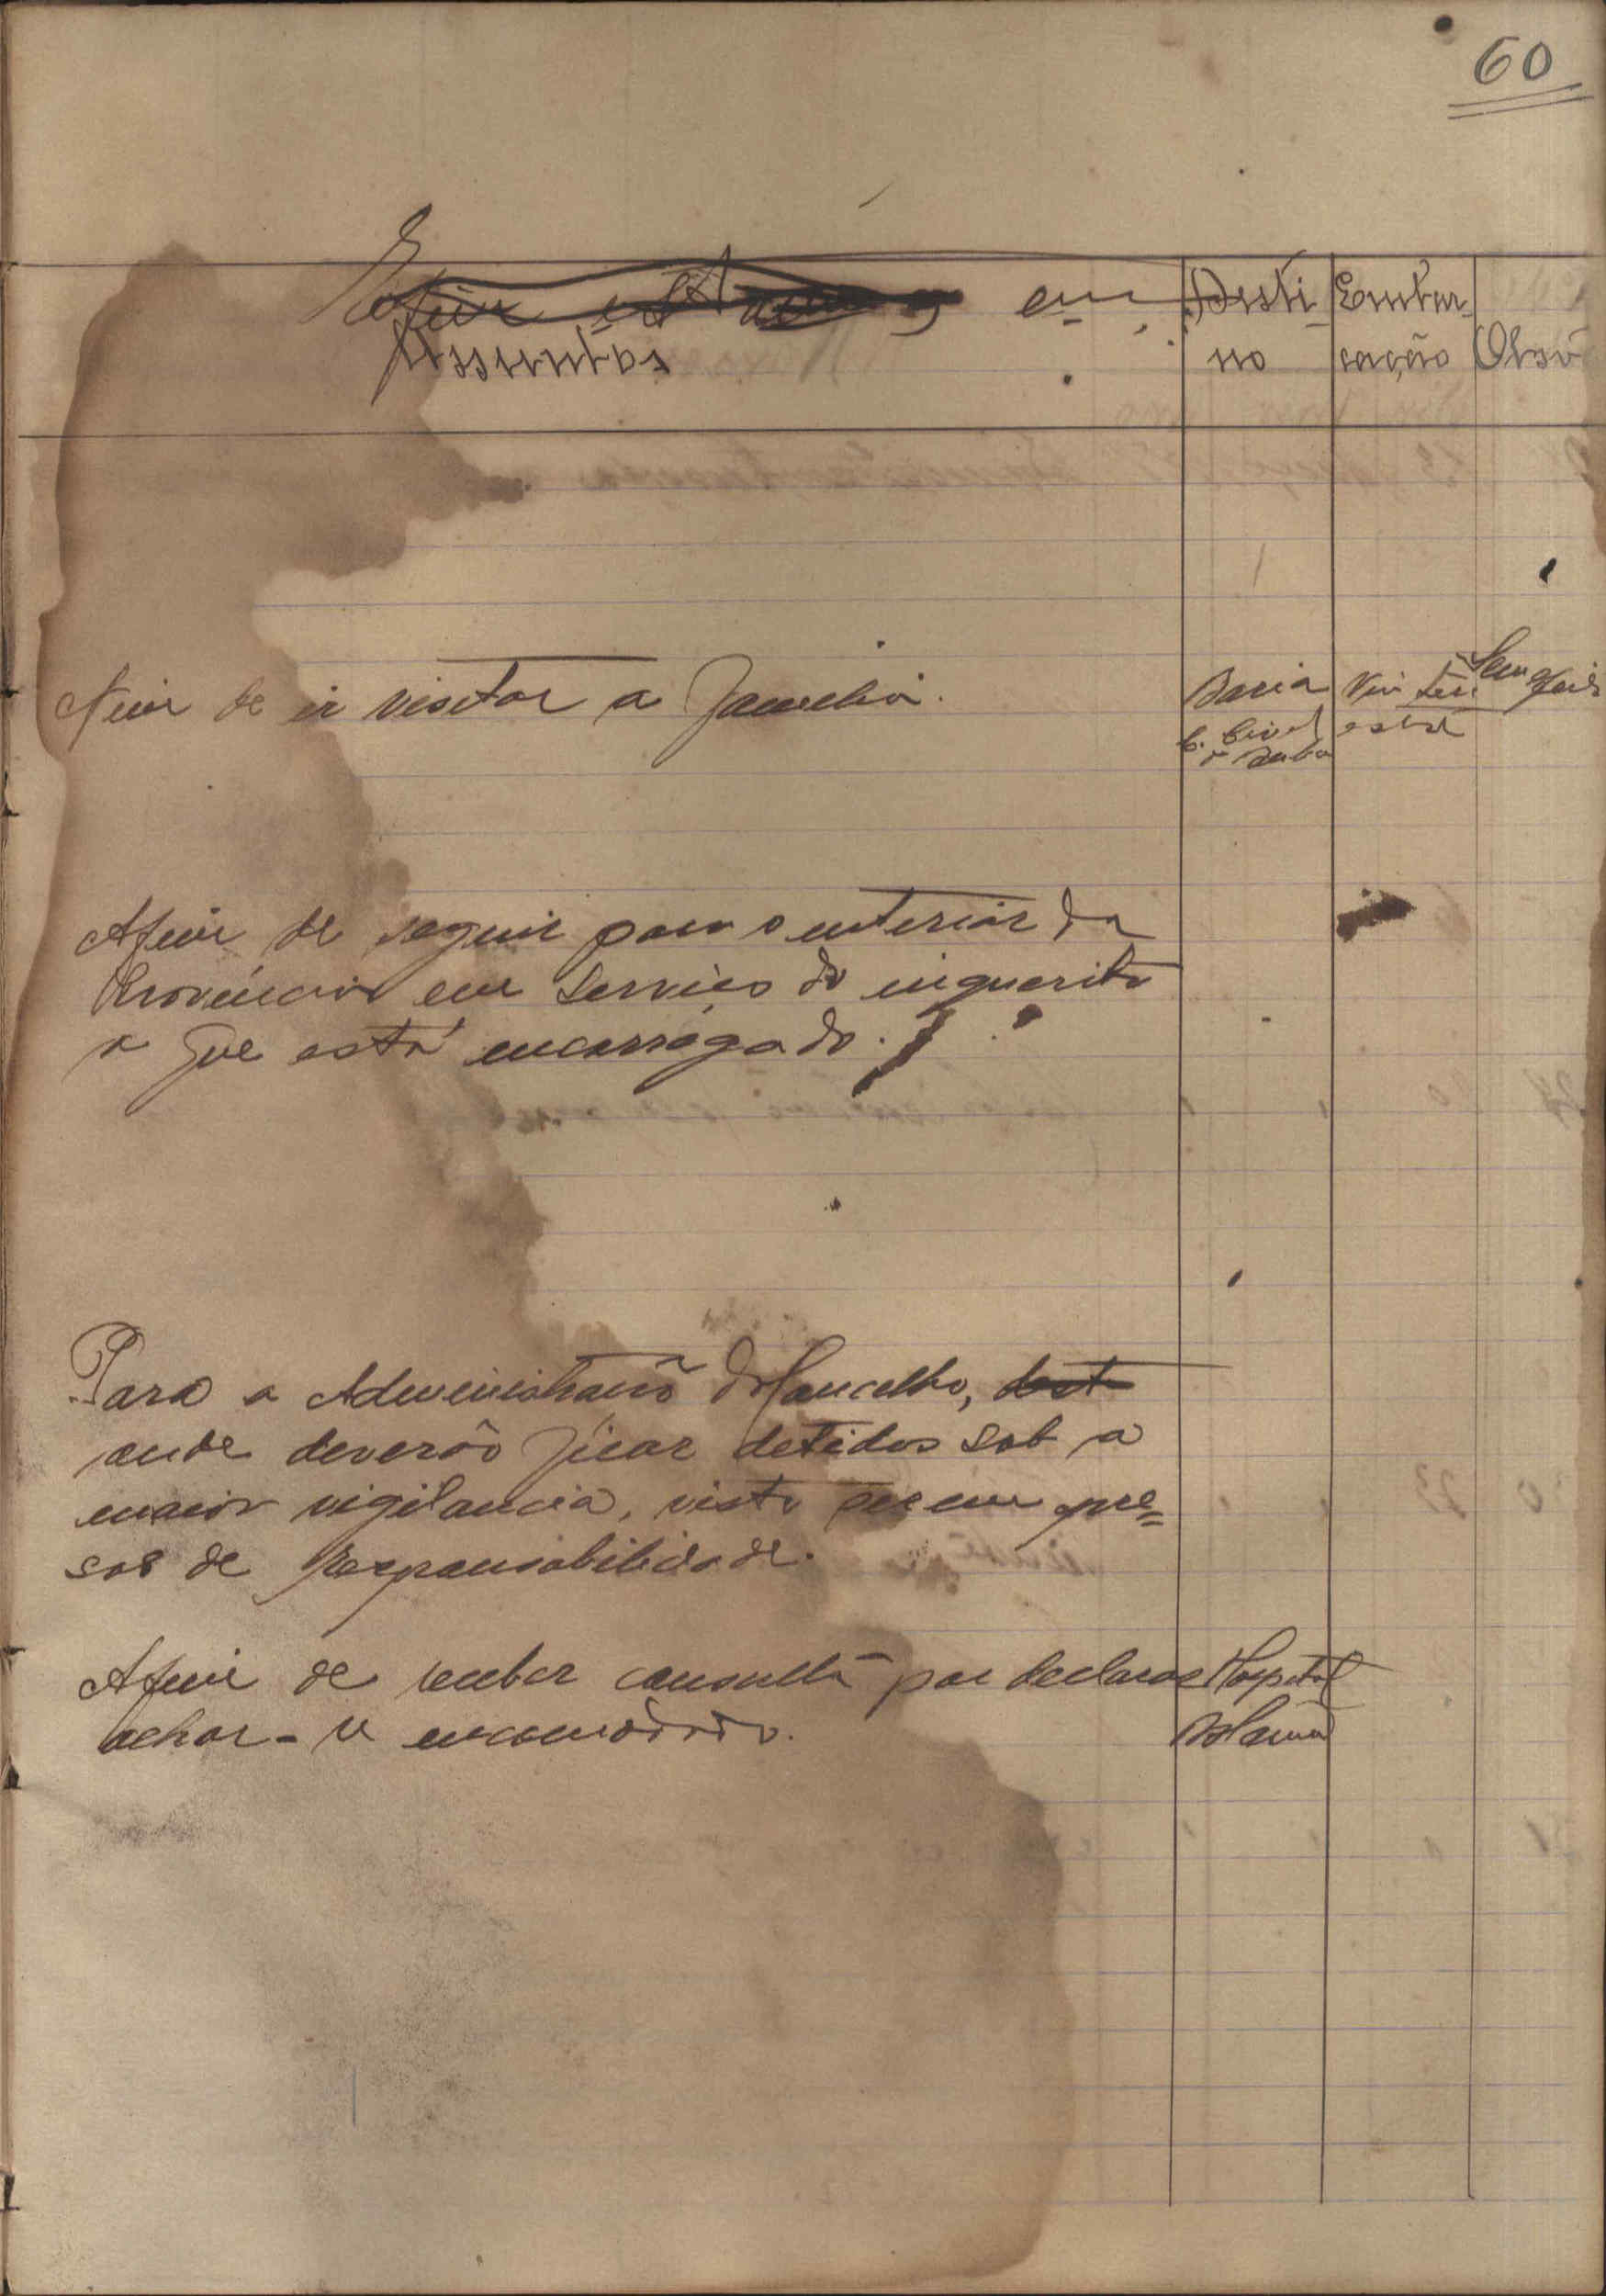 60
em
Assumptos
Desti-
no
Embar-
cação
Obsv
Afim de ir visitar a familia.
Vim
esta
Afim de seguir para o interior da
Provincia em serviço do inquerito
a que está encarregado.
Para a Administracão do Concelho,
onde deverão ficar detidos sob a
maior vigilancia, visto serem pre=
sos de responsabilidade.
Afim de receber consulta por declarar
achar-se encomodado.
Hospital
Bolama